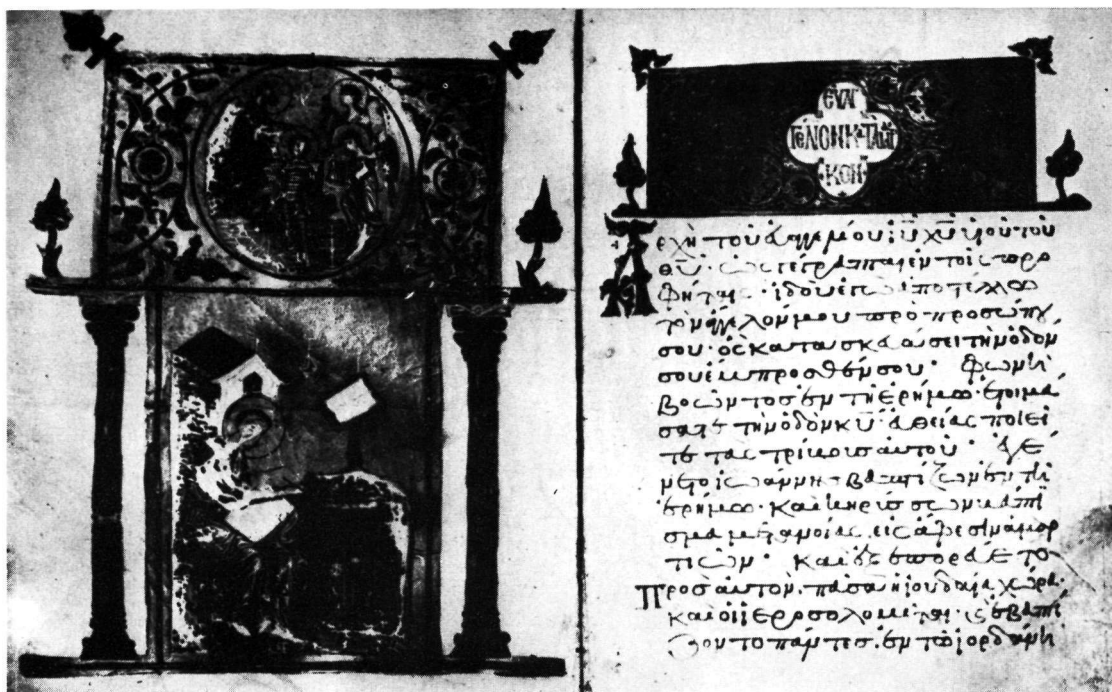 ΕΥΑΓ
ΚΟΝ
Αρχὴ τοῦ εὐαγγελίου ἰῦ χῦ υἱοῦ τοῦ
θῦ · ὡς γέγραπται ἐν τοῖς προ
φήταις · ἰδοὺ ἐγὼ ἀποστέλλω
τὸν ἄγγελόν μου πρὸ προσώπου
σου · ὃς κατασκευάσει τὴν ὁδόν
σου ἔμπροσθέν σου · φωνὴ
βοῶντος ἐν τῇ ἐρήμω · ἑτοιμά
σατε τὴν ὁδὸν κῦ · εὐθείας ποιεῖ
τε τὰς τρίβους αὐτοῦ · ἐγέ
νετο ἰωάννης βαπτίζων ἐν τῇ
ἐρήμω · καὶ κηρύσσων βάπτι
σμα μετανοίας εἰς ἄφεσιν ἁμαρ
τιῶν · καὶ ἐξεπορεύετο
πρὸς αὐτὸν · πᾶσα ἡ ἰουδαία χώρα ·
καὶ οἱ ἱεροσολυμῖται · ἐβαπτί
ζοντο πάντες · ἐν τῶ ἰορδάνη